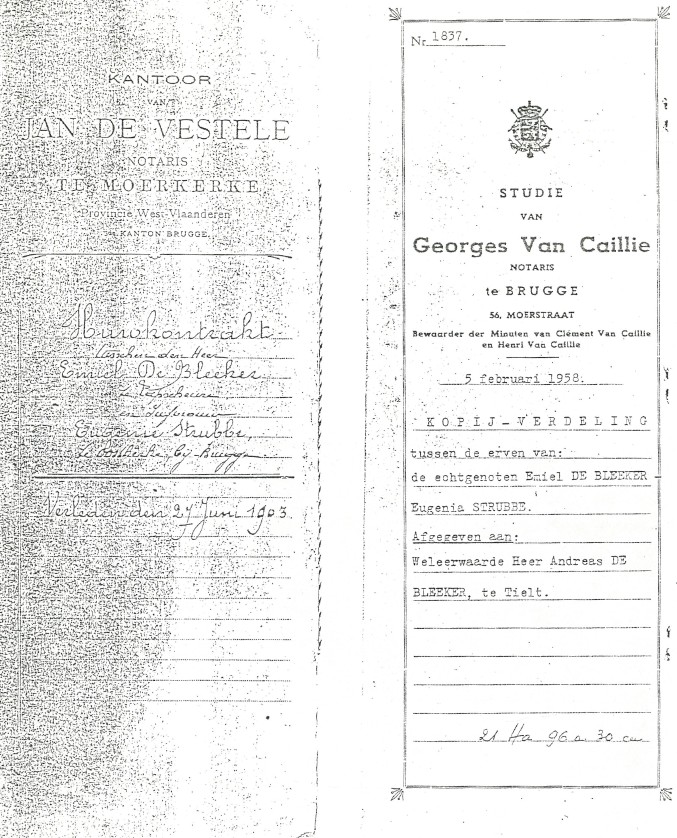 KANTOOR
VAN
JAN DE VESTELE
NOTARIS
TE MOERKERKE
Provincie West-Vlaanderen
KANTON BRUGGE.
Huwkontrakt
tusschen den Heer
Emiel De Bleeker
te
en Jufvrouw
Eugenie Strubbe,
te Oostkerke by Brugge
Verleden den 27 Juni 1903
Nr 1837.
STUDIE
VAN
Georges Van Caillie
NOTARIS
te BRUGGE
56, MOERSTRAAT
Bewaarder der Minuten van Clément Van Caillie
en Henri Van Caillie
5 februari 1958.
KOPIJ-VERDELING
tussen de erven van:
de echtgenoten Emiel DE BLEEKER -
Eugenia STRUBBE.
Afgegeven aan:
Weleerwaarde Heer Andreas DE
BLEEKER, te Tielt.
21 Ha 96 a 30 ca